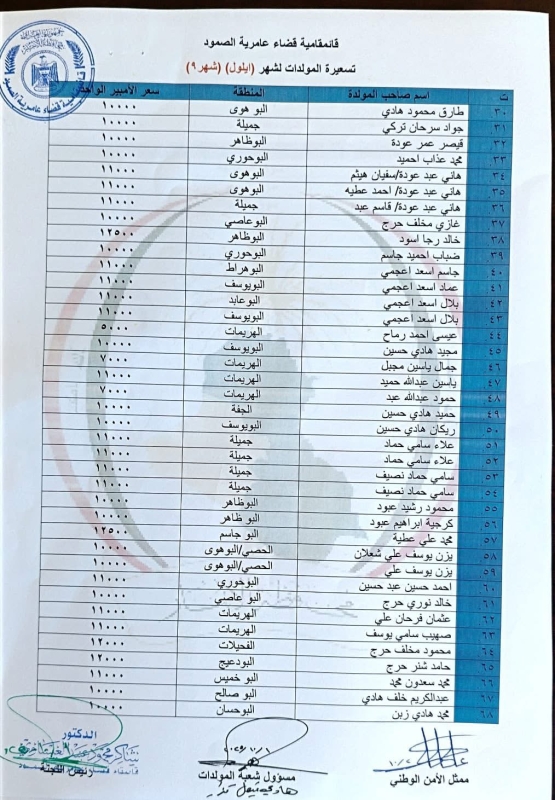 قائمقامية قضاء عامرية الصمود
تسعيرة المولدات لشهر (ايلول) (شهر ٩)
ت اسم صاحب المولدة المنطقة سعر الأمبير الواحد
٣٠ طارق محمود هادي البو هوى ١٠٠٠٠
٣١ جواد سرحان تركي جميلة ١٠٠٠٠
٣٢ قيصر عمر عودة البوظاهر ١٠٠٠٠
٣٣ محمد عذاب احميد البوحوري ١٠٠٠٠
٣٤ هاني عبد عودة/سفيان هيثم البوهوى ١١٠٠٠
٣٥ هاني عبد عودة/ احمد عطيه البوهوى ١١٠٠٠
٣٦ هاني عبد عودة/ قاسم عبد جميلة ١١٠٠٠
٣٧ غازي مخلف حرج البوعاصي ١٠٠٠٠
٣٨ خالد رجا اسود البوظاهر ١٢٥٠٠
٣٩ ضباب احميد جاسم البوحوري ١٠٠٠٠
٤٠ جاسم اسعد اعجمي البوهراط ١١٠٠٠
٤١ عماد اسعد اعجمي البويوسف ١١٠٠٠
٤٢ بلال اسعد اعجمي البوعابد ١١٠٠٠
٤٣ بلال اسعد اعجمي البويوسف ١١٠٠٠
٤٤ عيسى احمد رماح الهريمات ٥٠٠٠
٤٥ مجيد هادي حسين البويوسف ١٠٠٠٠
٤٦ جمال ياسين مجبل الهريمات ٧٠٠٠
٤٧ ياسين عبدالله حميد الهريمات ١١٠٠٠
٤٨ حمود عبدالله عبد الهريمات ٧٠٠٠
٤٩ حميد هادي حسين الجفة ١٠٠٠٠
٥٠ ريكان هادي حسين البويوسف ١٠٠٠٠
٥١ علاء سامي حماد جميلة ١١٠٠٠
٥٢ علاء سامي حماد جميلة ١١٠٠٠
٥٣ سامي حماد نصيف جميلة ١١٠٠٠
٥٤ سامي حماد نصيف جميلة ١١٠٠٠
٥٥ محمود رشيد عبود البوظاهر ١٠٠٠٠
٥٦ كرجية ابراهيم عبود البو ظاهر ١٠٠٠٠
٥٧ محمد علي عطية البو جاسم ١٢٥٠٠
٥٨ يزن يوسف علي شعلان الحصي/البوهوى ١٠٠٠٠
٥٩ يزن يوسف علي الحصي/البوهوى ١٠٠٠٠
٦٠ احمد حسين عبد حسين البوحوري ١١٠٠٠
٦١ خالد نوري حرج البو عاصي ١٠٠٠٠
٦٢ عثمان فرحان علي الهريمات ١١٠٠٠
٦٣ صهيب سامي يوسف الهريمات ١١٠٠٠
٦٤ محمود مخلف حرج الفحيلات ١٢٠٠٠
٦٥ حامد شنر حرج البودعيج ١٢٠٠٠
٦٦ محمد سعدون محمد البو خميس ١١٠٠٠
٦٧ عبدالكريم خلف هادي البو صالح ١٠٠٠٠
٦٨ محمد هادي زبن البوحسان ١٠٠٠٠
ممثل الأمن الوطني
مسؤول شعبة المولدات
الدكتور
رئيس اللجنة